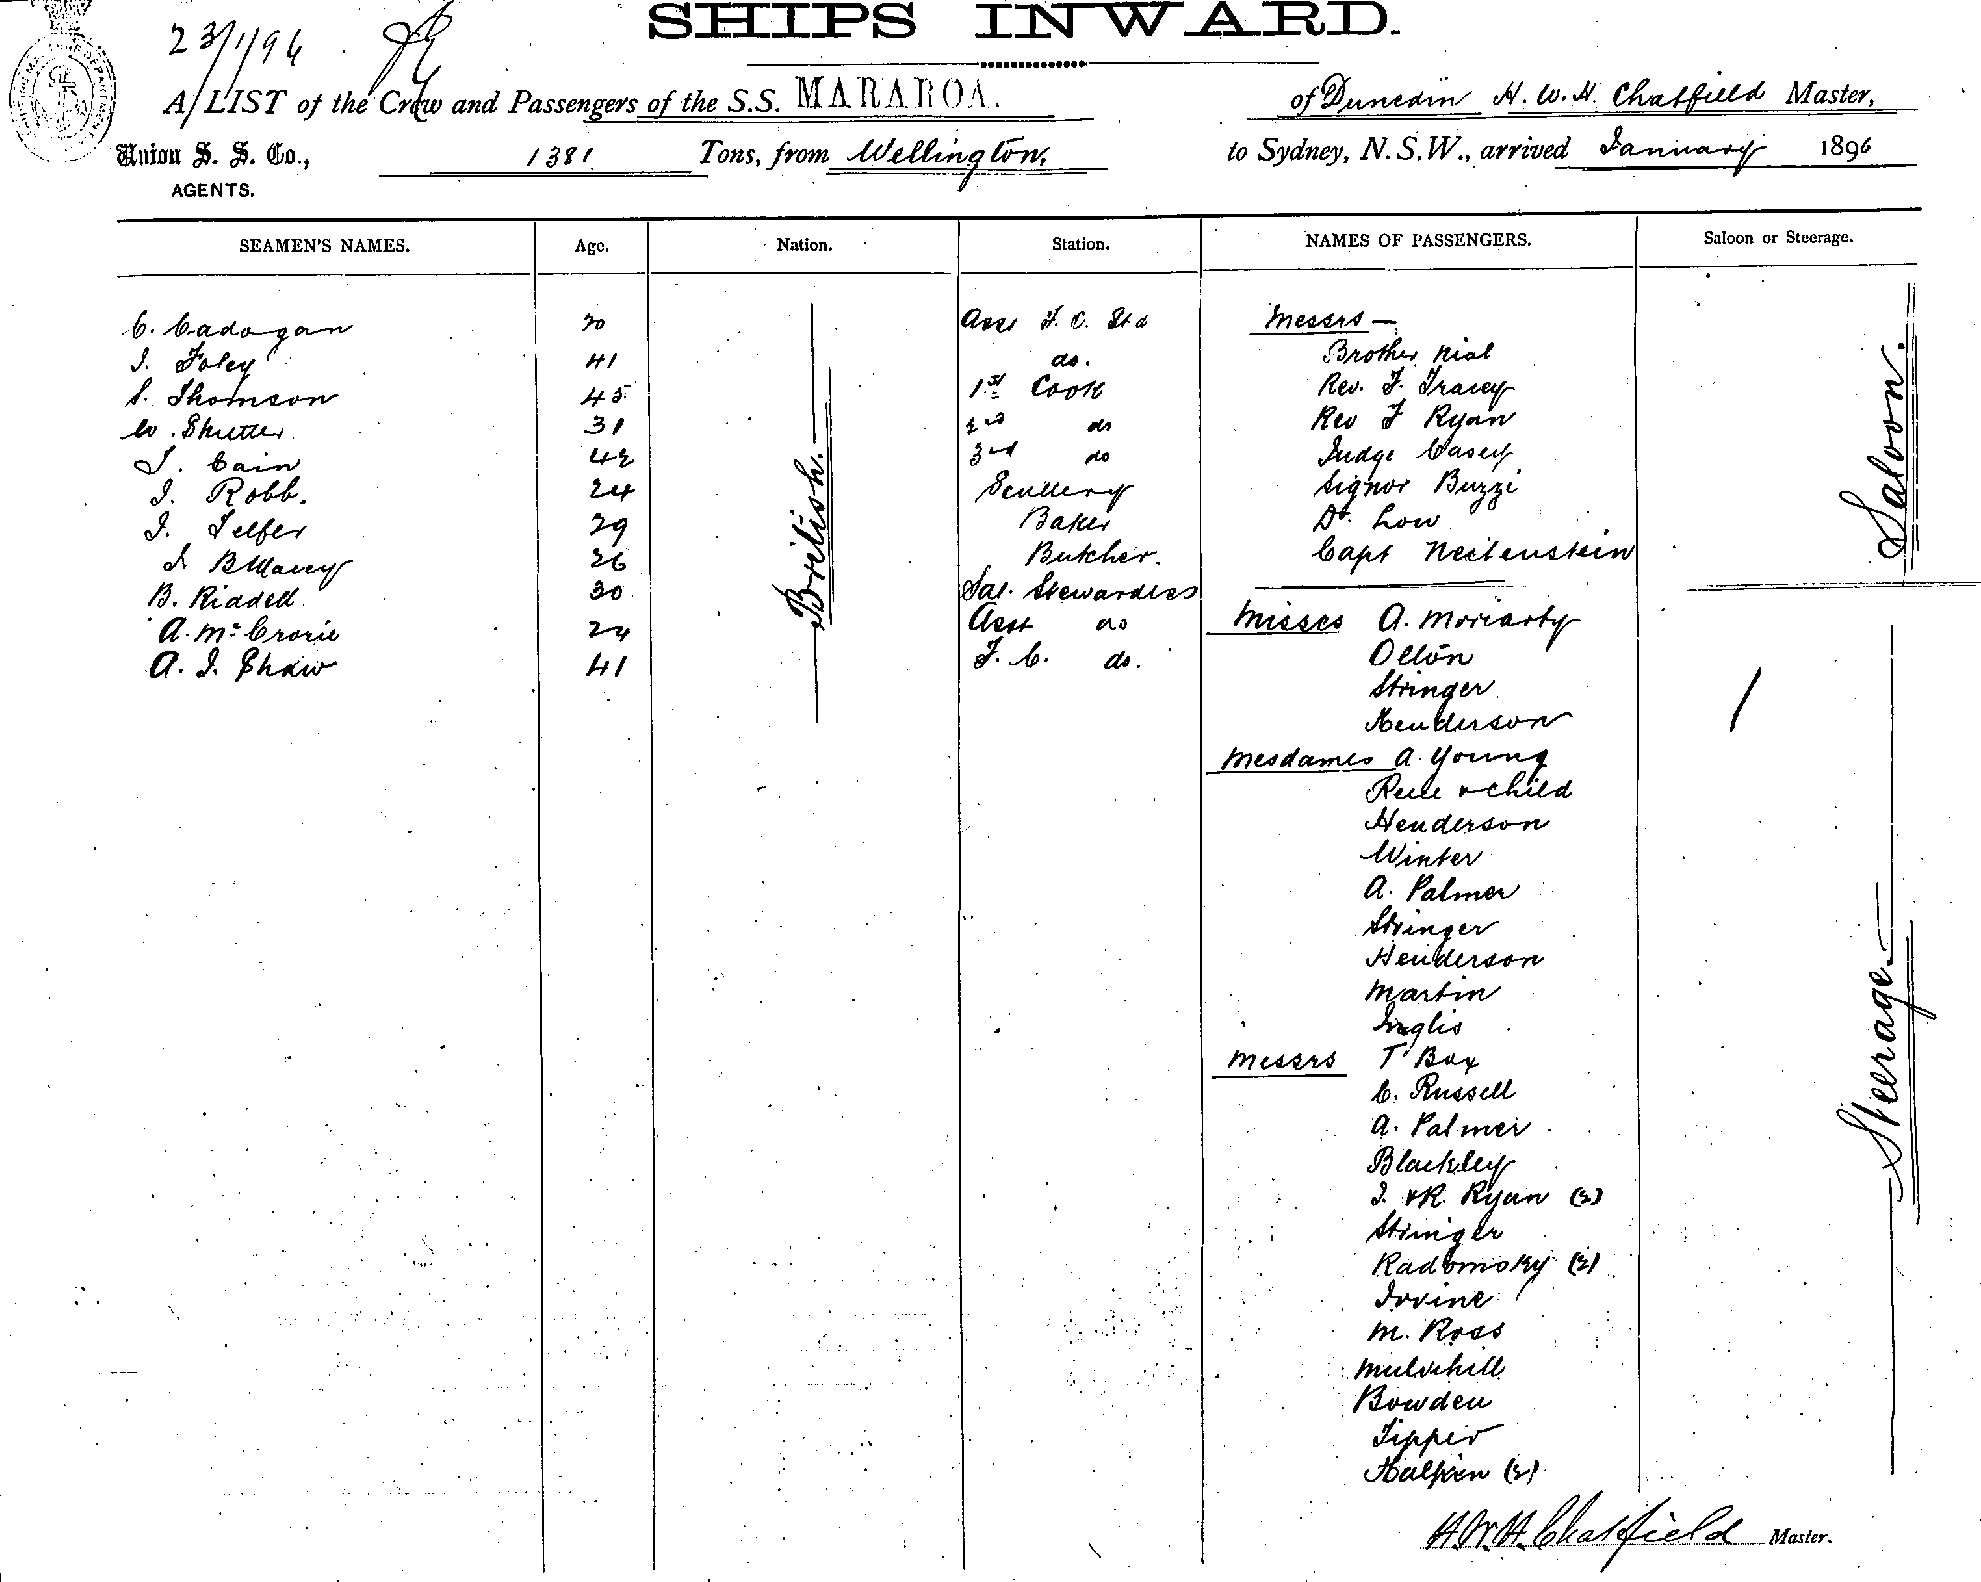 23/1/96
SHIPS INWARD.
A LIST of the Crew and Passengers of the S.S. MARAROA. of Dunedin H. W. H. Chatfield Master,
Union S. S. Co., 1381 Tons, from Wellington, to Sydney, N.S.W., arrived January 1896
AGENTS.
SEAMEN'S NAMES. Age. Nation. Station. NAMES OF PASSENGERS. Saloon or Steerage.
C. Cadogan 20 Asst F. C. Std Messrs —
J. Foley 41 do. Brother Nial
S. Thomson 45 1st Cook Rev. F. Tracey
W. Shutter 31 2nd do Rev F Ryan
J. Cain 42 3rd do Judge Casey
J. Robb. 24 Scullery Signor Buzzi
J. Telfer 29 Baker Dr. Low
26 Butcher. Capt Neitenstein
B. Riddell 30 Sal. Stewardess
British.
Saloon.
A. McCrorie 24 Asst do Misses A. Moriarty
A. J. Shaw 41 F. C. do.
Stringer
Henderson
Mesdames A. Young
& Child
Henderson
Winter
A. Palmer
Stringer
Henderson
Martin
Inglis
Messrs T Box
C. Russell
A. Palmer
Blackley
J. & R. Ryan (2)
Stringer
Radomsky (2)
Irvine
M. Ross
Mulvihill
Bowden
Tipper
Halpin (2)
Steerage
H. W. H. Chatfield Master.